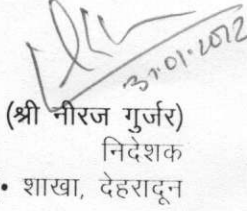 31.01.2022
(श्री नीरज गुर्जर)
निदेशक
• शाखा, देहरादून